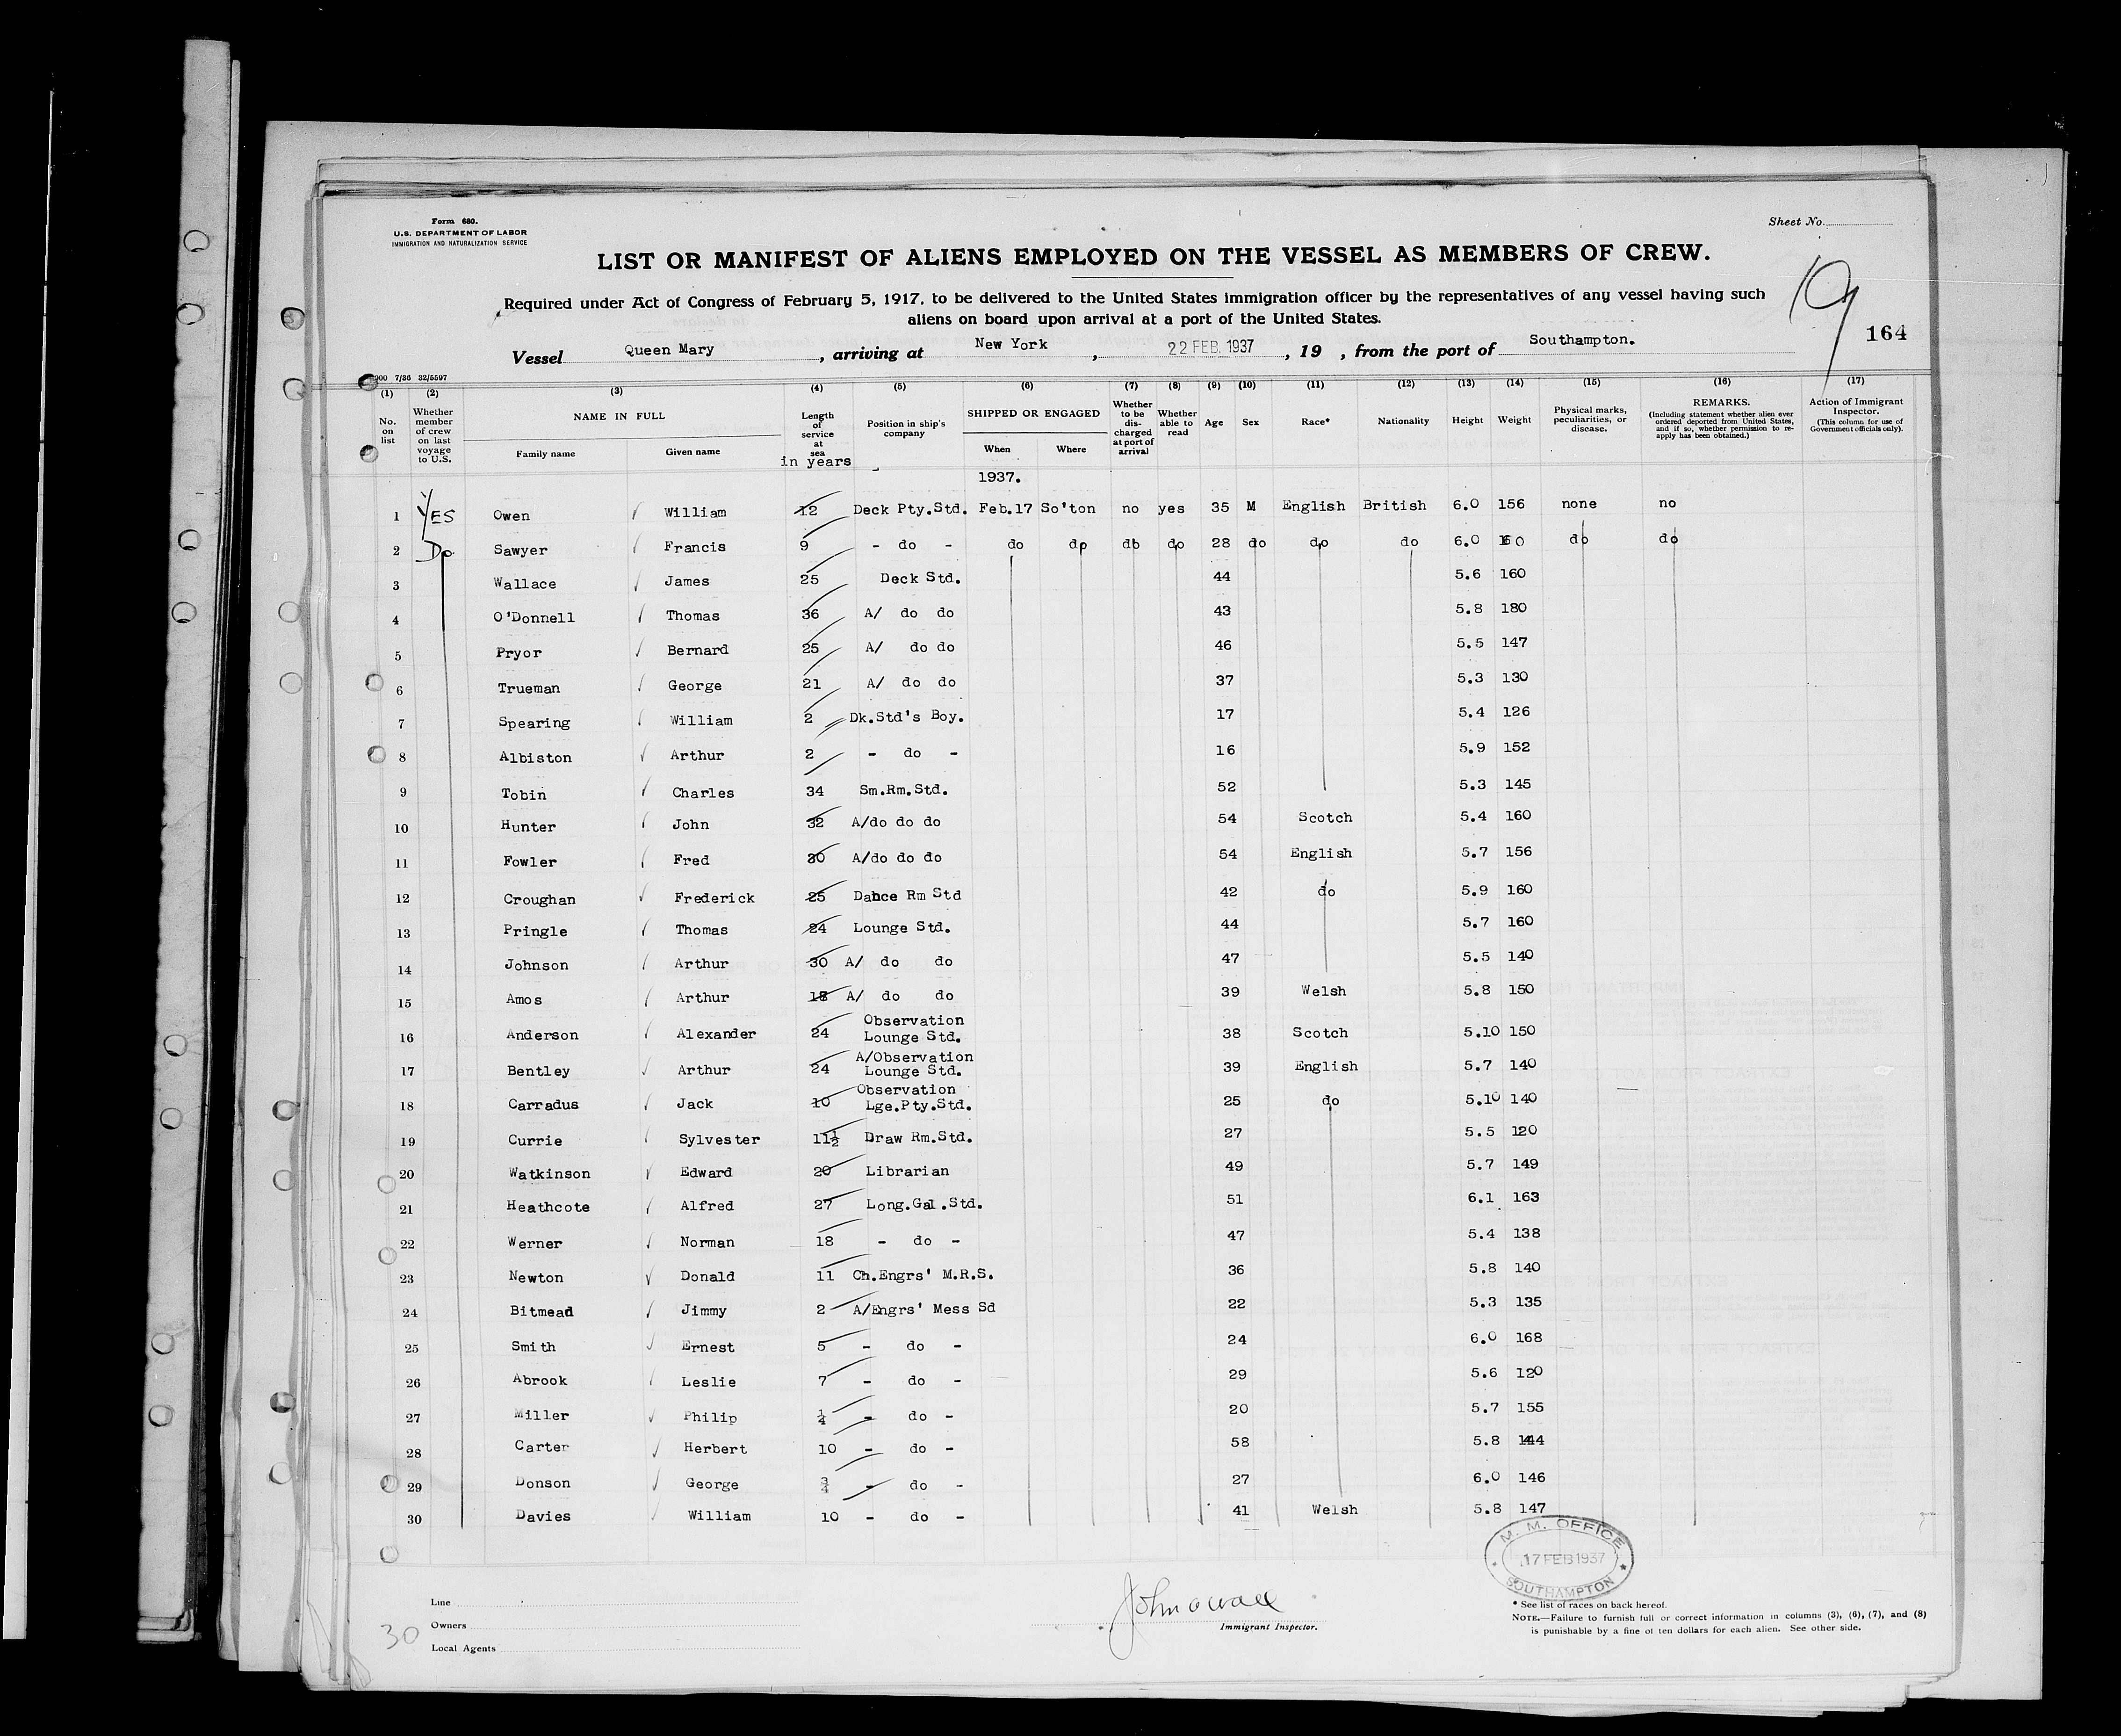 Form 680.
U.S. DEPARTMENT OF LABOR
IMMIGRATION AND NATURALIZATION SERVICE
Sheet No.
LIST OR MANIFEST OF ALIENS EMPLOYED ON THE VESSEL AS MEMBERS OF CREW.
Required under Act of Congress of February 5, 1917, to be delivered to the United States immigration officer by the representatives of any vessel having such
aliens on board upon arrival at a port of the United States.
19
164
Vessel Queen Mary, arriving at New York, 22 FEB. 1937, 19 , from the port of Southampton.
000 7/36 32/5597
(1) (2) (3) (4) (5) (6) (7) (8) (9) (10) (11) (12) (13) (14) (15) (16) (17)
No. on list
Whether member of crew on last voyage to U.S.
NAME IN FULL
Family name Given name
Length of service at sea in years
Position in ship's company
SHIPPED OR ENGAGED
When Where
Whether to be discharged at port of arrival
Whether able to read
Age Sex Race* Nationality Height Weight
Physical marks, peculiarities, or disease.
REMARKS.
(Including statement whether alien ever ordered deported from United States, and if so, whether permission to reapply has been obtained.)
Action of Immigrant Inspector.
(This column for use of Government officials only).
1937.
1 YES Owen William 12 Deck Pty.Std. Feb.17 So'ton no yes 35 M English British 6.0 156 none no
2 Do Sawyer Francis 9 - do - do do do do 28 do do do 6.0 160 do do
3 Wallace James 25 Deck Std. 44 5.6 160
4 O'Donnell Thomas 36 A/ do do 43 5.8 180
5 Pryor Bernard 25 A/ do do 46 5.5 147
6 Trueman George 21 A/ do do 37 5.3 130
7 Spearing William 2 Dk.Std's Boy. 17 5.4 126
8 Albiston Arthur 2 - do - 16 5.9 152
9 Tobin Charles 34 Sm.Rm.Std. 52 5.3 145
10 Hunter John 32 A/do do do 54 Scotch 5.4 160
11 Fowler Fred 30 A/do do do 54 English 5.7 156
12 Croughan Frederick 25 Dance Rm Std 42 do 5.9 160
13 Pringle Thomas 24 Lounge Std. 44 5.7 160
14 Johnson Arthur 30 A/ do do 47 5.5 140
15 Amos Arthur 18 A/ do do 39 Welsh 5.8 150
16 Anderson Alexander 24 Observation Lounge Std. 38 Scotch 5.10 150
17 Bentley Arthur 24 A/Observation Lounge Std. 39 English 5.7 140
18 Carradus Jack 10 Observation Lge.Pty.Std. 25 do 5.10 140
19 Currie Sylvester 11½ Draw Rm.Std. 27 5.5 120
20 Watkinson Edward 20 Librarian 49 5.7 149
21 Heathcote Alfred 27 Long.Gal.Std. 51 6.1 163
22 Werner Norman 18 - do - 47 5.4 138
23 Newton Donald 11 Ch.Engrs' M.R.S. 36 5.8 140
24 Bitmead Jimmy 2 A/Engrs' Mess Sd 22 5.3 135
25 Smith Ernest 5 - do - 24 6.0 168
26 Abrook Leslie 7 - do - 29 5.6 120
27 Miller Philip ¼ - do - 20 5.7 155
28 Carter Herbert 10 - do - 58 5.8 144
29 Donson George ¾ - do - 27 6.0 146
30 Davies William 10 - do - 41 Welsh 5.8 147
M. M. OFFICE
17 FEB 1937
SOUTHAMPTON
Line
Owners
Local Agents
30
Immigrant Inspector.
* See list of races on back hereof.
NOTE.—Failure to furnish full or correct information in columns (3), (6), (7), and (8)
is punishable by a fine of ten dollars for each alien. See other side.